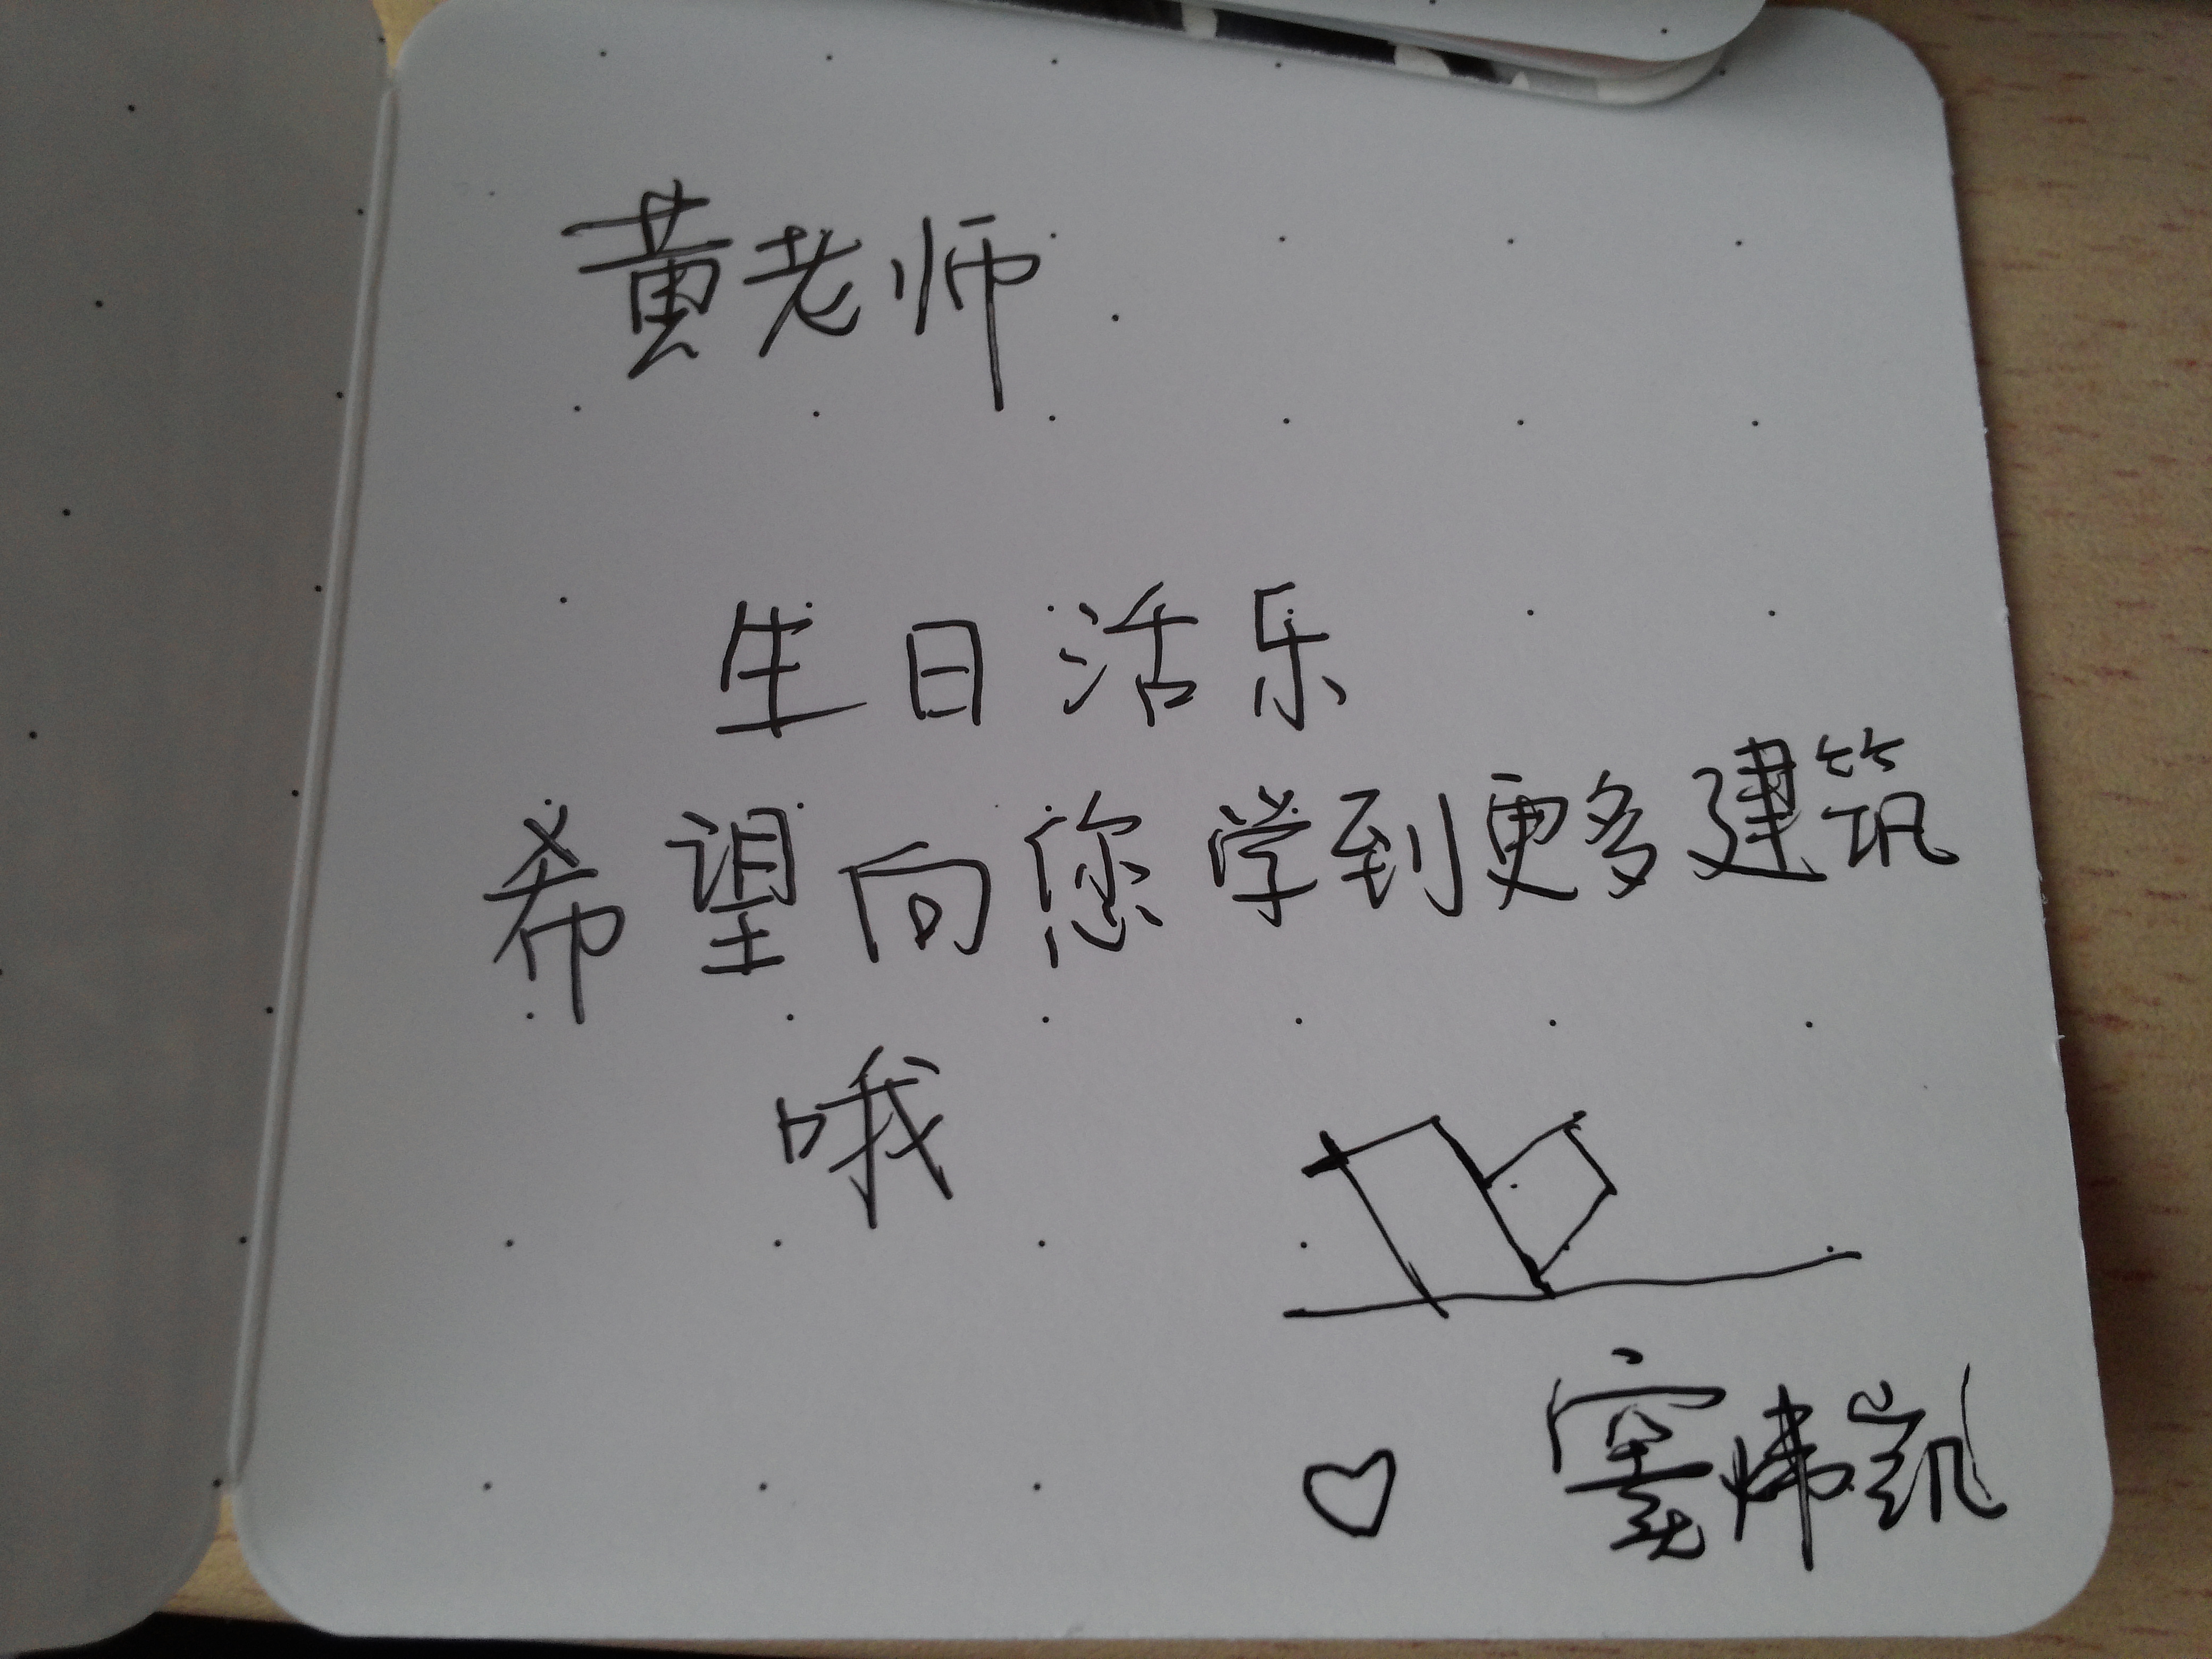 黄老师
生日活乐
希望向您学到更多建筑
哦
炜凯